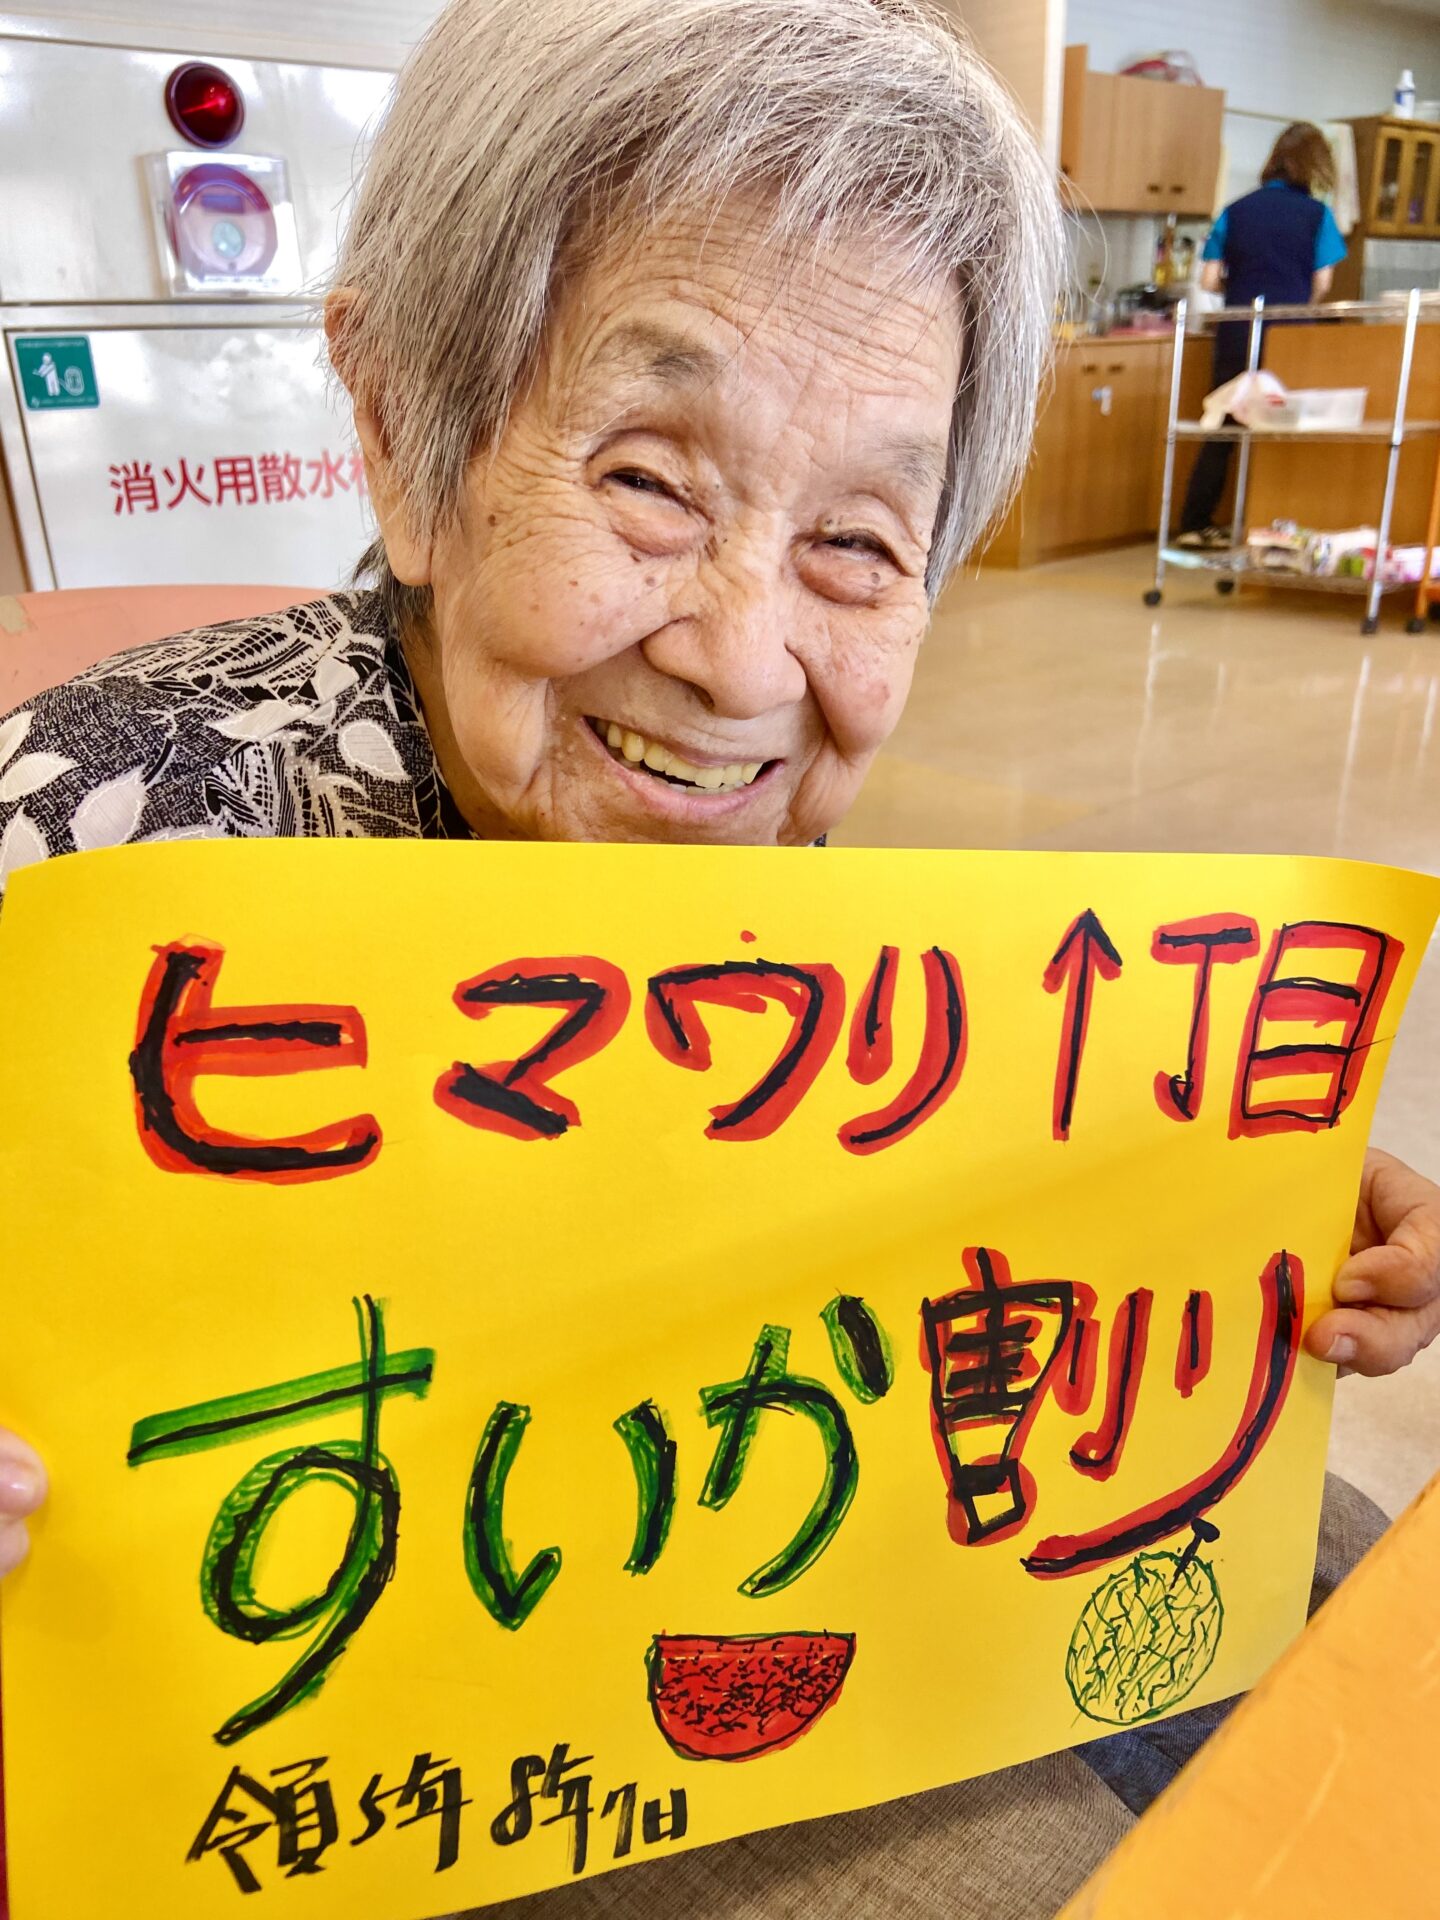 消火用散水栓
ヒマワリ1丁目
すいか割り
領5年8年7日